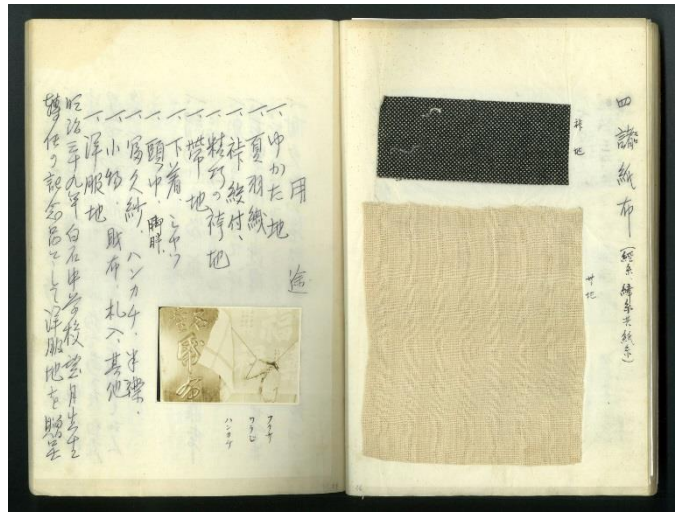 四 諸紙布(経糸緯糸共紙糸)
裃地
サ地
用途
一、ゆかた地
一、夏羽織
一、裃、絞付、
一、精巧の袴地
一、帯地
一、下着、シャツ
一、頭巾、脚胖、
一、富久紗、ハンカチ、半襟、
一、小物、財布、札入、其他
一、洋服地
明治三十九年白石中学校望月先生
轉任の記念品として洋服地を贈呈
ハンカケ